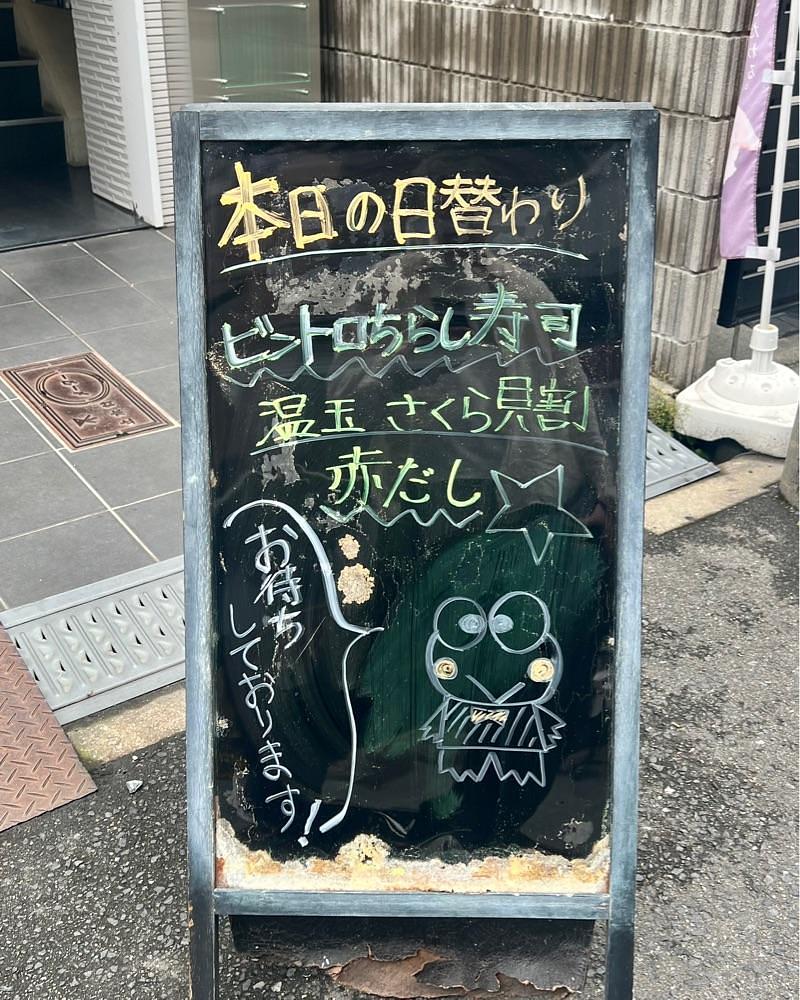 本日の日替わり
ビントロちらし寿司
温玉 さくら貝割
赤だし
お待ち
しております!